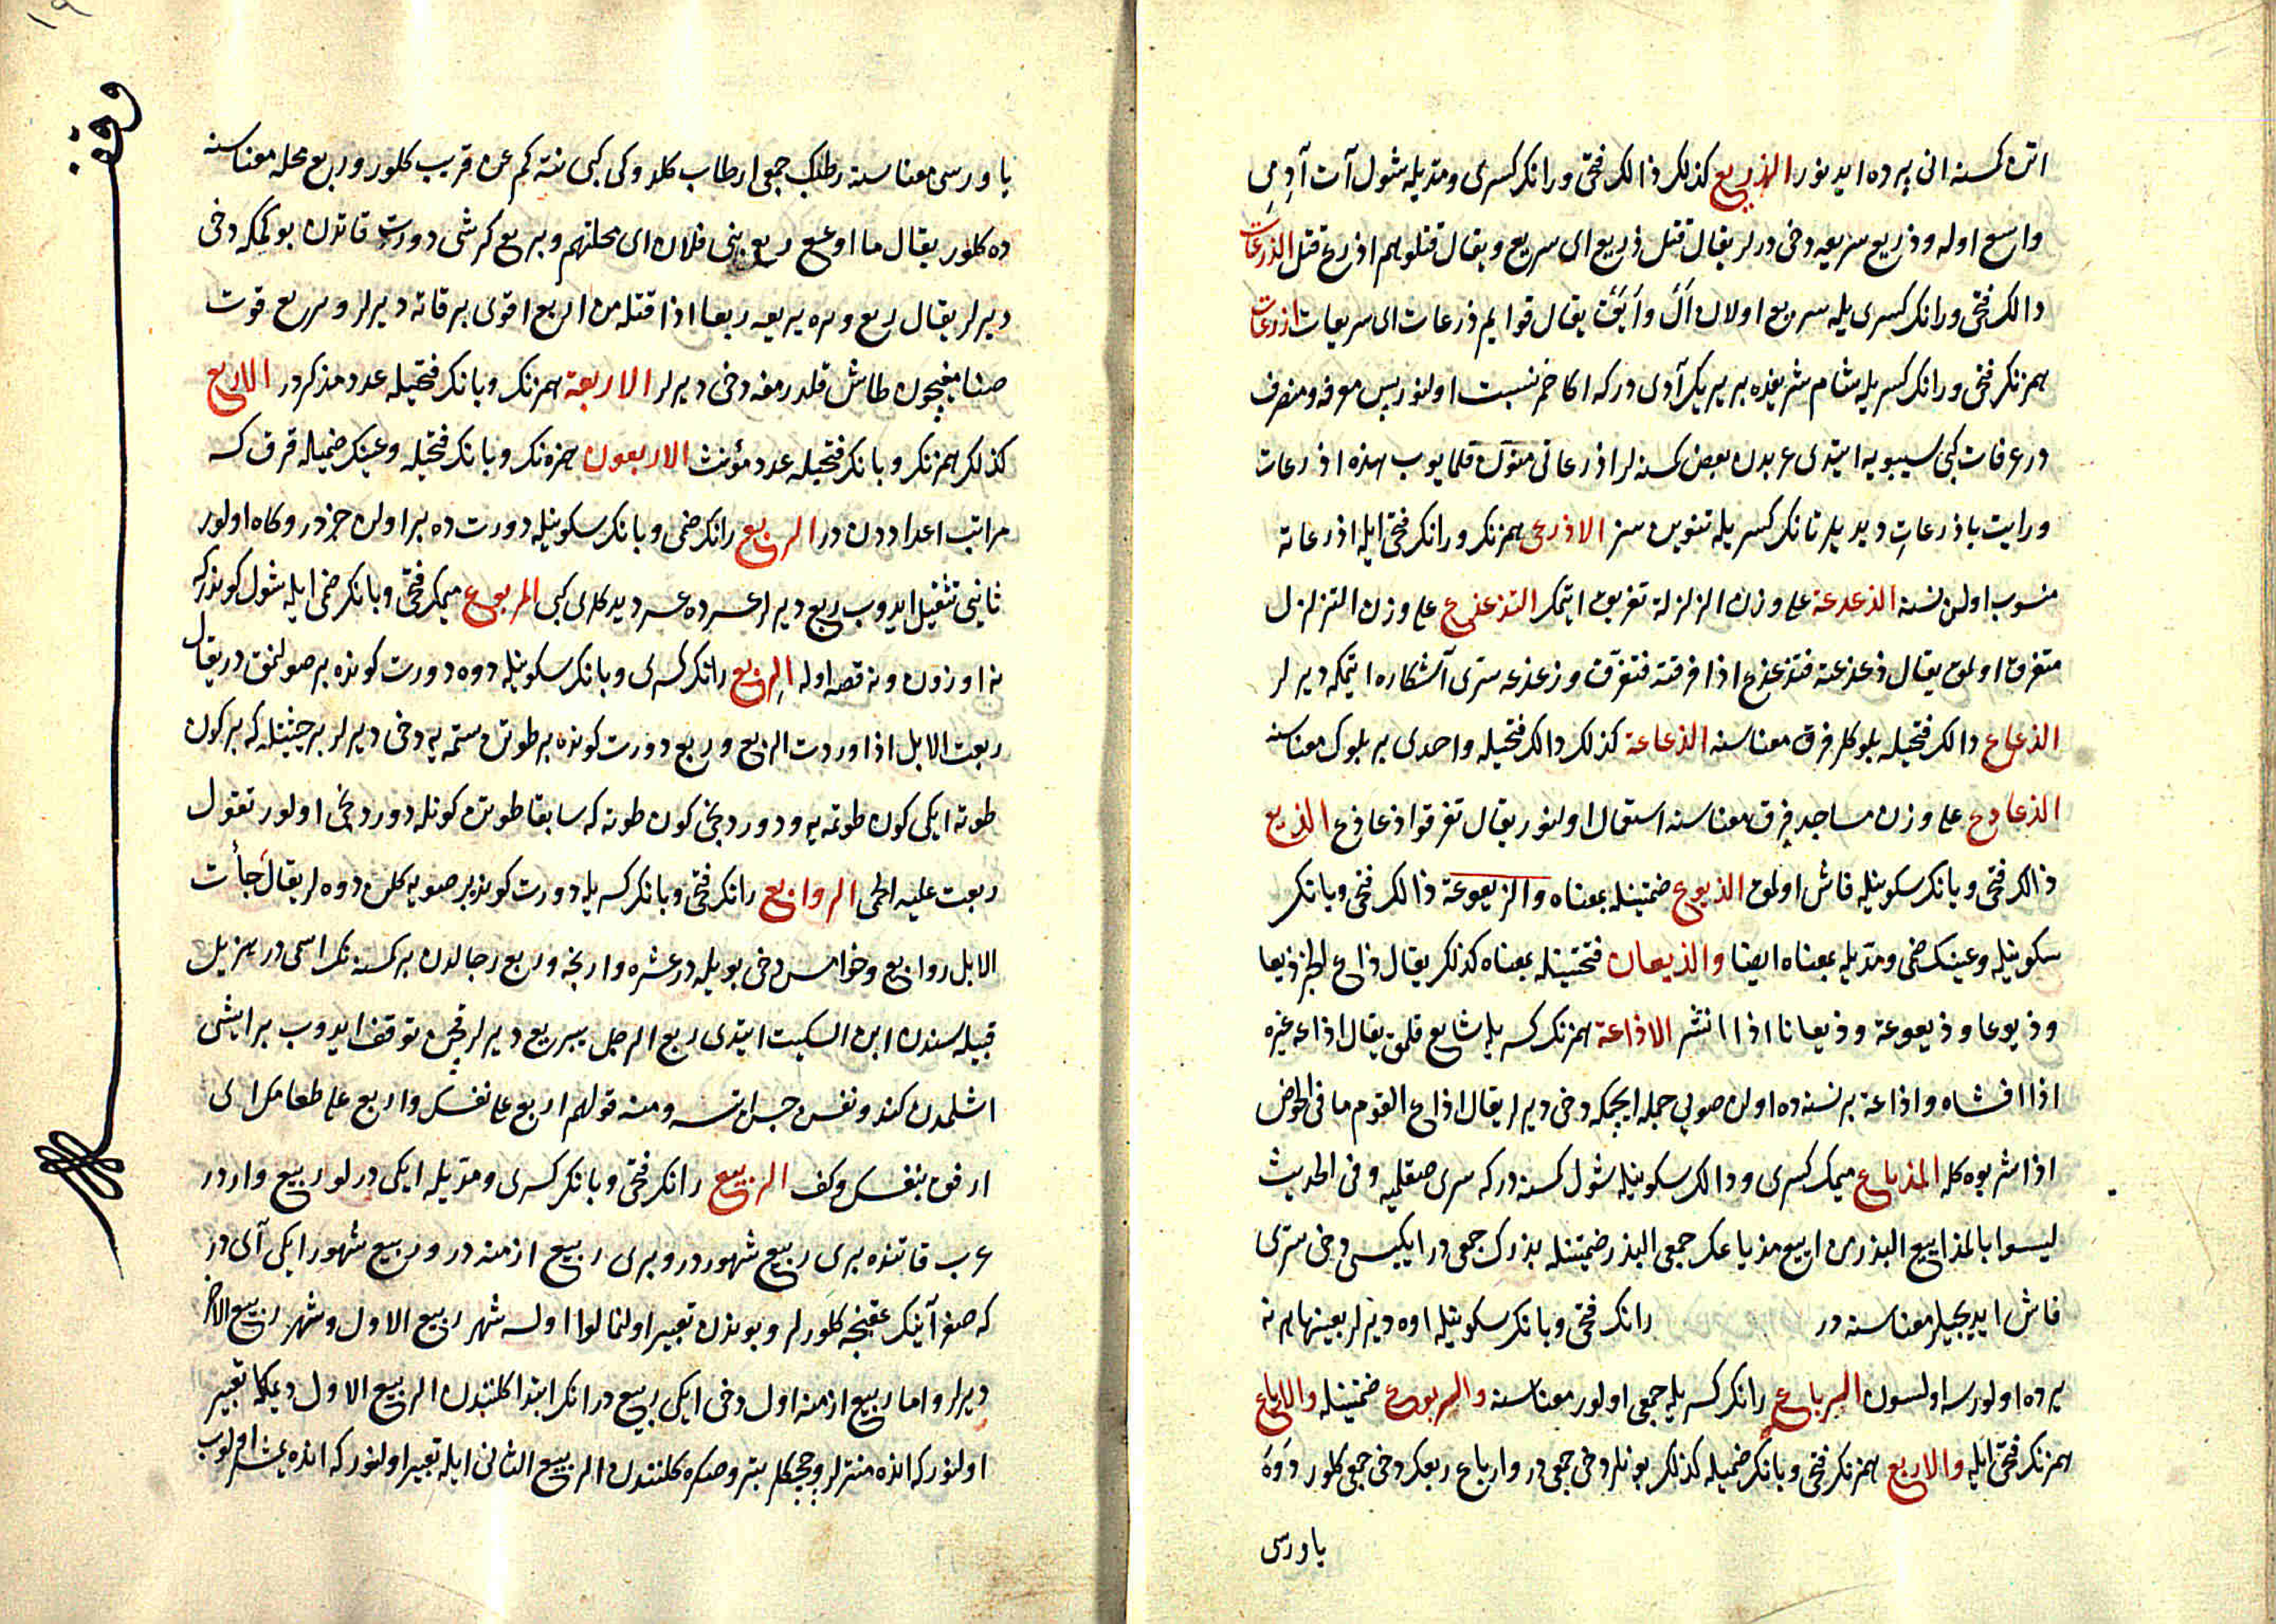 اتن كمسنه انى يرده ايدنور الذريع كذلك ذالك فتحى ورانك كسرى ومديله شول آت آدمى
واسع اوله وذريع سريعه دخى ديرلر يقال قتل ذريع اى سريع ويقال قتلوهم اذرع قتل الذرعات
ذالك فتحى ورانك كسرى يله سريع اولان ال واياق يقال قوايم ذرعات اى سريعات اذرعات
همزنك فتحى ورانك كسريله شام شريفده بر يرك آدى دركه اكا خمر نسبت اولنور پس معرفه ومنصرف
در عرفات كبى سيبويه ايتدى عربدن بعض كسنه لر اذرعاتى منون قلمايوب هذه اذرعات
ورايت باذرعات ديديلر تانك كسريله تنوين سز الاذرعى همزنك ورانك فتحى ايله اذرعاته
منسوب اولن نسنه الذعذعة على وزن الزلزلة تفريق ايتمك التذعذع على وزن التزلزل
متفرق اولمق يقال ذعذعته فتذعذع اذا فرقته فتفرق وذعذعه سرى آشكاره ايتمكه ديرلر
الذعاع ذالك فتحيله بلوكلر فرق معناسنه الذعاعة كذلك ذالك فتحيله واحدى بر بلوك معناسنه
الذعاذع على وزن مساجد فرق معناسنه استعمال اولنور يقال تفرقوا ذعاذع الذيع
ذالك فتحى ويانك سكونيله فاش اولمق الذيوع ضمتينله بمعناه والذيعوعة ذالك فتحى ويانك
سكونيله وعينك ضمى ومديله بمعناه ايضا والذيعان فتحتينله بمعناه كذلك يقال ذاع الخبر ذيعا
وذيوعا وذيعوعة وذيعانا اذا انتشر الاذاعة همزنك كسريله شايع قلمق يقال اذاعه غيره
اذا افشاه واذاعة بر نسنه ده اولن صويى جمله ايچمكه دخى ديرلر يقال اذاع القوم ما فى الحوض
اذا شربوه كله المذياع ميمك كسرى وذالك سكونيله شول كمسنه دركه سرى صقلميه وفى الحديث
ليسوا بالمذاييع البذر مذاييع مذياعك جمعى البذر ضمتينله بذرك جمعى در ايكيسى دخى سرى
فاش ايديجيلر معناسنه در رانك فتحى وبانك سكونيله اوه ديرلر بعينها هر نه
يرده اولورسه اولسون الرباع رانك كسريله جمعى اولور معناسنه والربوع ضمتينله والارباع
همزنك فتحى ايله والاربع همزنك فتحى وبانك ضميله كذلك بونلر دخى جمعى در وارباع ربعك دخى جمعى كلور دوه
ياورسى
وقف
ياورسى معناسنه رطبك جمعى ارطاب كلدوكى كبى نته كم عن قريب كلور وربع محله معناسنه
ده كلور يقال ما اوسع ربع بنى فلان اى محلتهم وبر ع كرشى دورت قاتدن بوكمكه دخى
ديرلر يقال ربع وتره يربعه ربعا اذا فتله من اربع قوى بر قاته ديرلر وربع قوت
صنامغيچون طاش قلدرمغه دخى ديرلر الاربعة همزنك وبانك فتحيله عدد مذكردر الاربع
كذلك همزنك وبانك فتحيله عدد مؤنث الاربعون همزه نك وبانك فتحيله وعينك ضميله قرق كه
مراتب اعداددن در الربع رانك ضمى وبانك سكونيله دورت ده بر اولن جزدر وكاه اولور
ثانيى تثقيل ايدوب ربع ديرلر عسرده عسر ديدكلرى كبى المربوع ميمك فتحى وبانك ضمى ايله شول كوندركه
نه اوزون ونه قصه اوله الربع رانك كسرى وبانك سكونيله دوه دورت كونده بر صولنمق در يقال
ربعت الابل اذا وردت الربع وربع دورت كونده بر طوتن ستمه يه دخى ديرلر بر حيثيتله كه بر كون
طوته ايكى كون طوتميه ودوردنجى كون طوته كه سابقا طوتن كونله دوردنجى اولور تقول
ربعت عليه الحمى الروابع رانك فتحى وبانك كسريله دورت كونده بر صويه كلن دوه لر يقال جأت
الابل روابع وخوامس دخى بويله در عشره وارنجه وربع رجالدن بر كمسنه نك اسمى در هذيل
قبيله سندن ابن السكيت ايتدى ربع الرجل يربع ديرلر قچن توقف ايدوب بر ايشى
اشلمدن كندو نفسن حبس اتسه ومنه قولهم اربع على نفسك واربع على ظلعك اى
ارفق بنفسك وكف الربيع رانك فتحى وبانك كسرى ومديله ايكى درلو ربيع واردر
عرب قاتنده برى ربيع شهوردر وبرى ربيع ازمنه در وربيع شهور ايكى آى در
كه صفر آينك عقبنجه كلورلر وبوندن تعبير اولنمالو اولسه شهر ربيع الاول وشهر ربيع الاخر
ديرلر واما ربيع ازمنه اول دخى ايكى ربيع در انك ابتدا كلنندن الربيع الاول ديمكله تعبير
اولنور كه انده منترلر وچچكلر بتر وصكره كلنندن الربيع الثانى ايله تعبير اولنور كه انده يمشلر اولوب